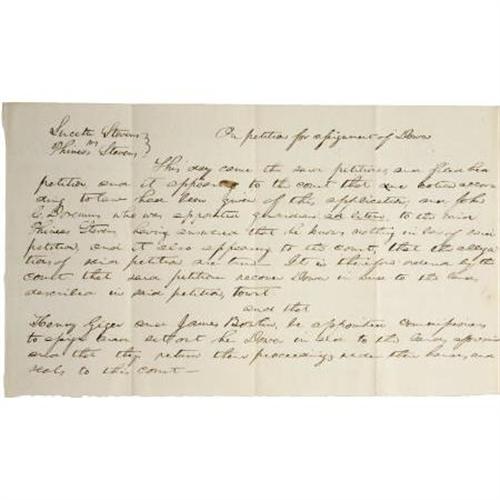 Lucetta Stevens
vs
Phineas Stevens
On petition for assignment of Dower
This day came the said petitioner and filed her
petition and it appearing to the court that due notice accor
ding to law had been given of this application and John
C. who was appointed guardian ad litem to the said
Phineas Stevens having answered that he knows nothing in bar of said
petition, and it also appearing to the court, that the allega
tions of said petition are true. It is therefore ordered by the
court that said petitioner recover Dower in the lands
described in said petition, towit
and that
Henry Giger and James be appointed commissioners
to assign and set out her Dower in to the lands aforesaid
and that they return their proceedings under their hands and
seals to this court —